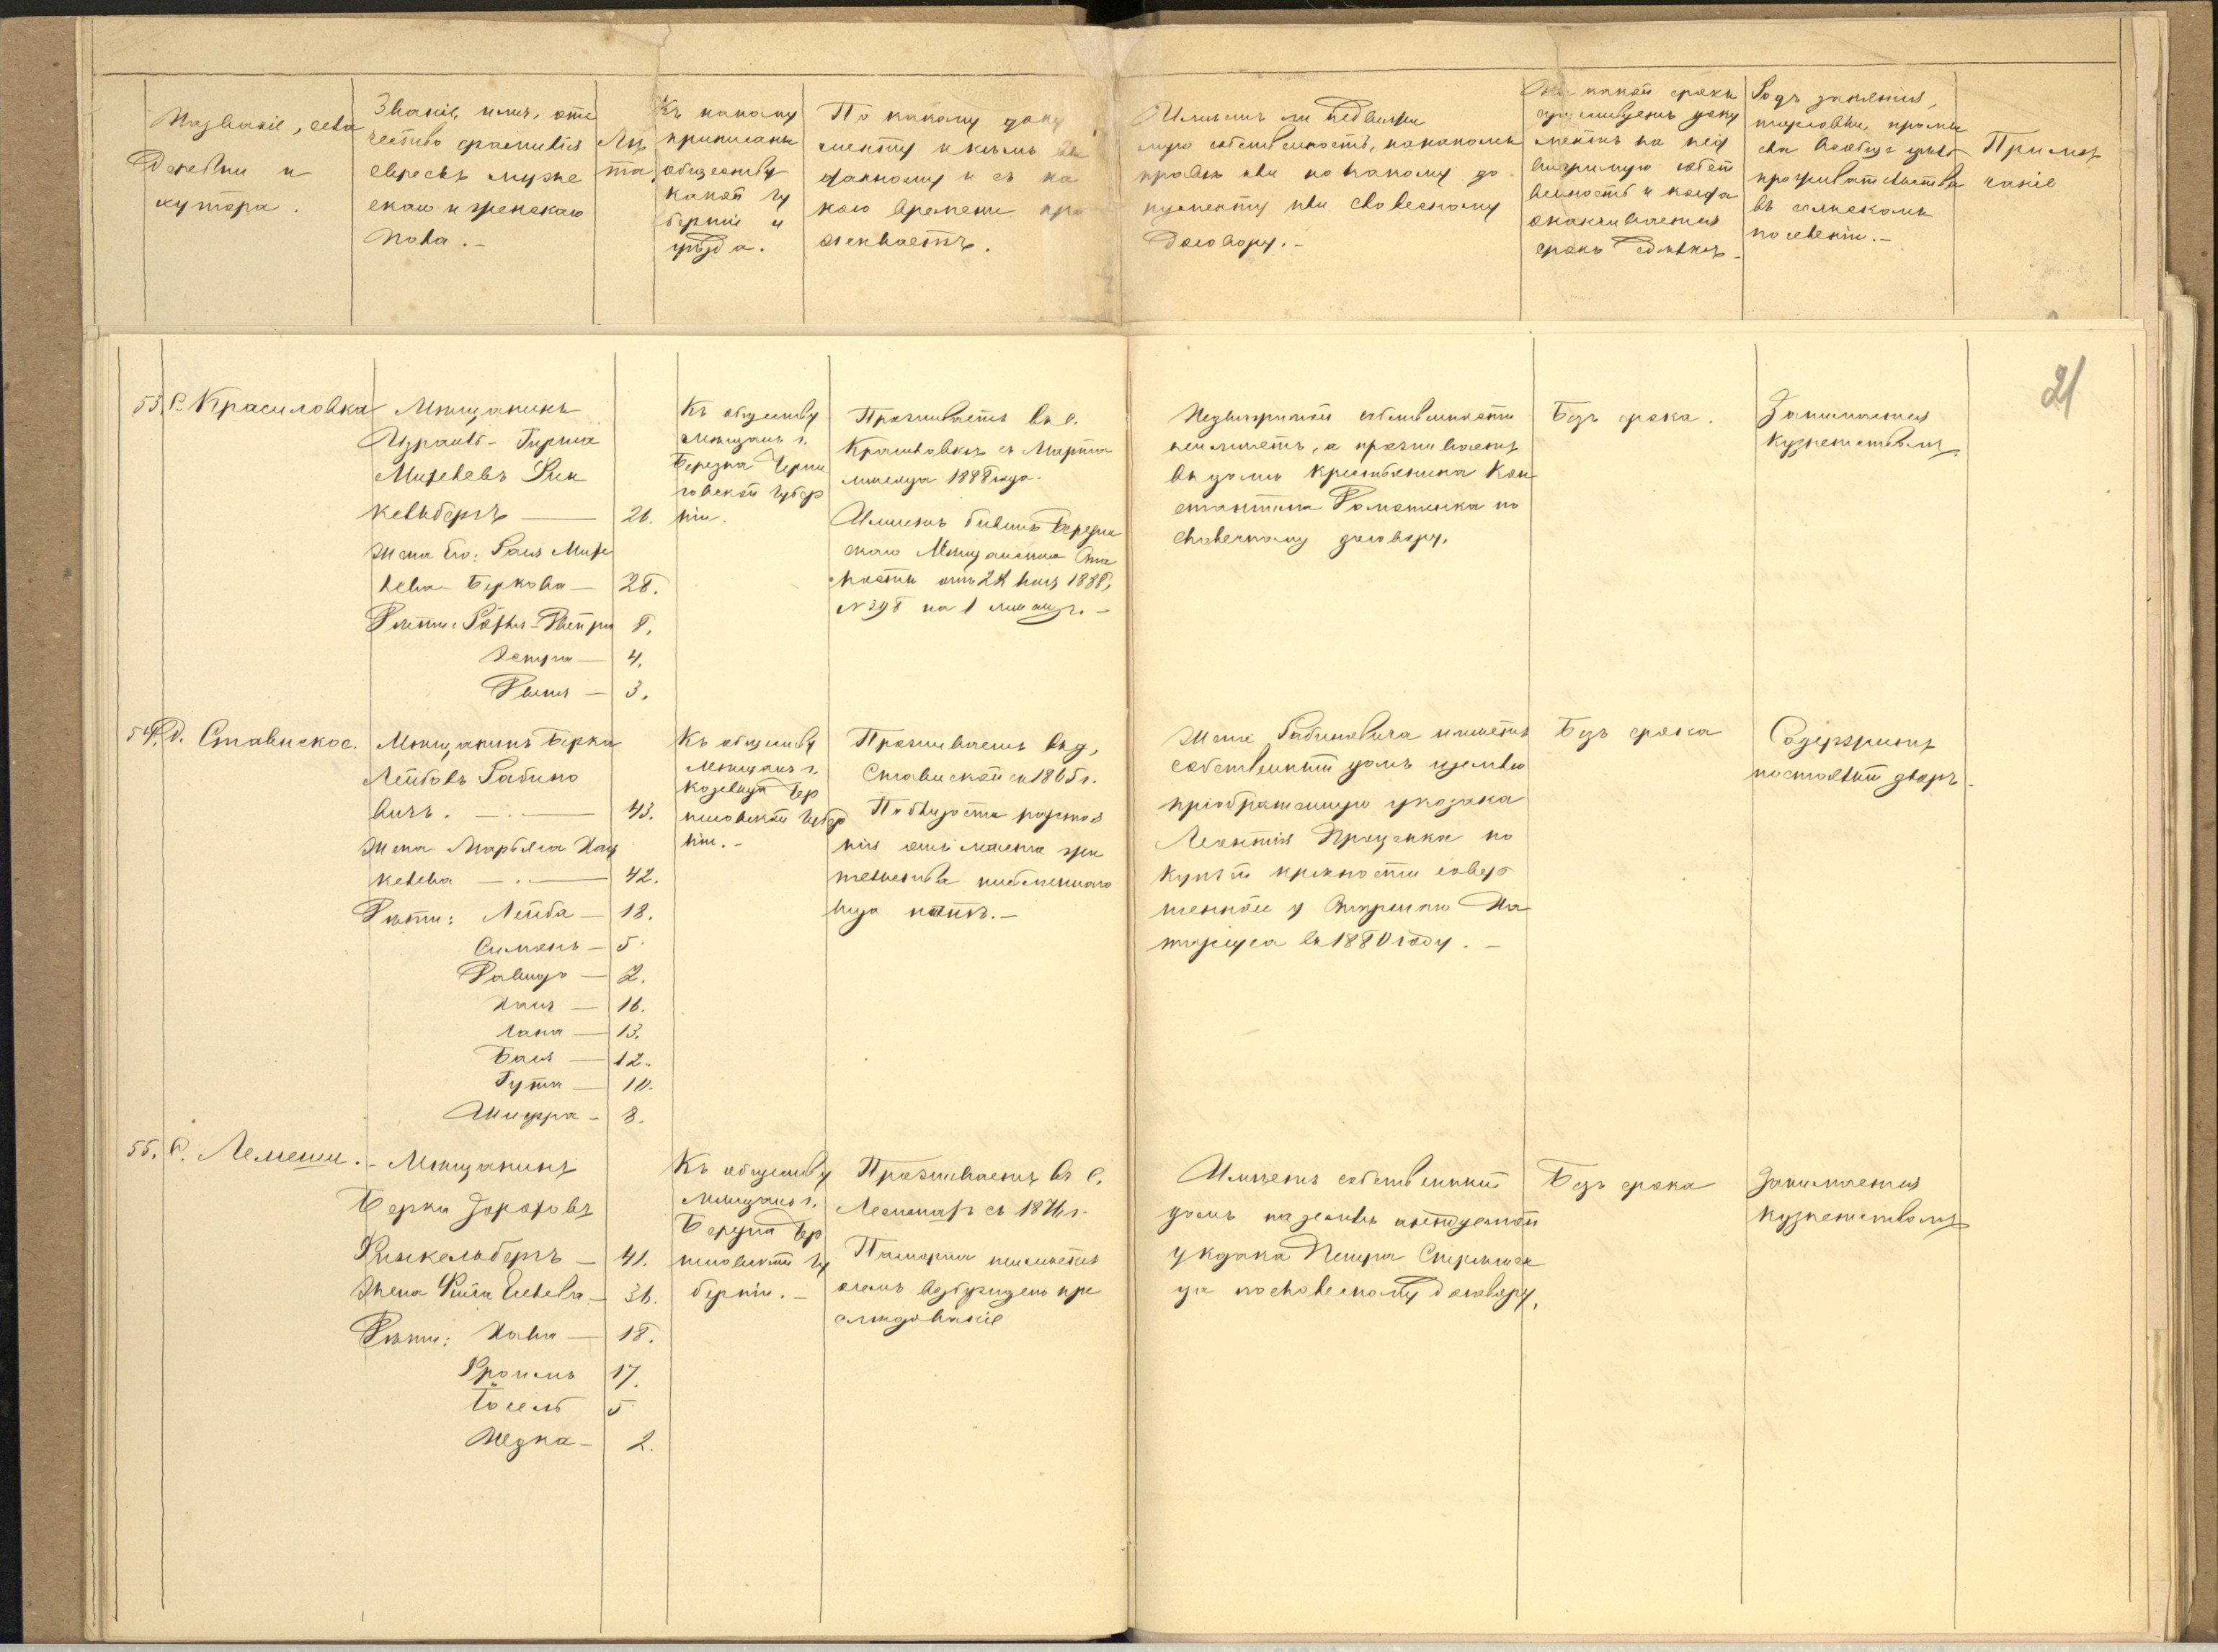 Названіе, села
Деревни и
хутора.
Званіе, имя, оте
чество фамилія
евреевъ муже
скаго и женскаго
пола.-
Лѣ
та
Къ какому
приписаны
обществу
какой гу
берніи и
уѣзда.
По какому доку
менту и кѣмъ вы
данному и съ ка
кого времени про
живаетъ.
Имѣетъ ли недвижи
мую собственность, на какомъ
правѣ или по какому до
кументу или словесному
договору.-
На какой срокъ
доку
ментъ на нед
вижимую собст
венность и когда
оканчивается
срокъ
Родъ занятія,
торговли, промы
сла вообще цѣль
проживательства
въ сельскомъ
поселеніи.-
Примѣ
чаніе
21
53. С. Красиловка
Мѣщанинъ
Израиль-Гирша
Михелевъ Фин
кельбергъ — 26.
Жена Его: Хая Михе
лева-Беркова — 28.
Дѣти: 8.
4.
3.
Къ обществу
Мѣщанъ г.
Березна Черни
говской Губер
ніи.
Проживаетъ въ с.
Красиловкѣ съ Марта
мѣсяца 1888 года.
Имѣетъ билетъ Березин
скаго Мѣщанскаго Ста
росты отъ 1888,
на 1
Недвижимой собственности
неимѣетъ, а проживаетъ
въ домѣ крестьянина Кон
стантина Романенка по
словесному договору.
Безъ срока.
Занимается
кузнечествомъ
54. Д. Стависское.
Мѣщанинъ Берка
Лейбовъ Рабино
вичъ. — 43.
Жена Марьяся Хац
келева — 42.
Дѣти: Лейба — 18.
Симонъ — 5.
Давидъ — 2.
Хая — 16.
Хана — 13.
Бася — 12.
Гута — 10.
Шифра — 8.
Къ обществу
Мѣщанъ г.
Козельца Чер
ниговской Губер
ніи.-
Проживаетъ въ д.
Ставиской съ 1865 г.
По близости разстоя
нія отъ мѣста жи
тельства письменнаго
вида нѣтъ.-
Жена Рабиновича имѣетъ
собственный домъ и землю
пріобрѣтенную у козака
Леонтія Проценка по
купчей крѣпости совер
шенной у Старшаго На
таріуса въ 1880 году.-
Безъ срока
Содержитъ
постоялый дворъ.
55. С. Лемеши.
Мѣщанинъ
Берка Зороховъ
Финкельбергъ — 41.
Жена Фейга — 36.
Дѣти: Хава — 18.
Фроимъ 17.
Іосель 5.
2.
Къ обществу
Мѣщанъ г.
Березна Чер
ниговской Гу
берніи.-
Проживаетъ въ с.
Лемешахъ съ 1876 г.
Паспорта неимѣетъ
о чемъ возбуждено пре
слѣдованіе
Имѣетъ собственный
домъ на землѣ арендуемой
у козака Петра
по словесному договору.
Безъ срока
Занимается
кузнечествомъ